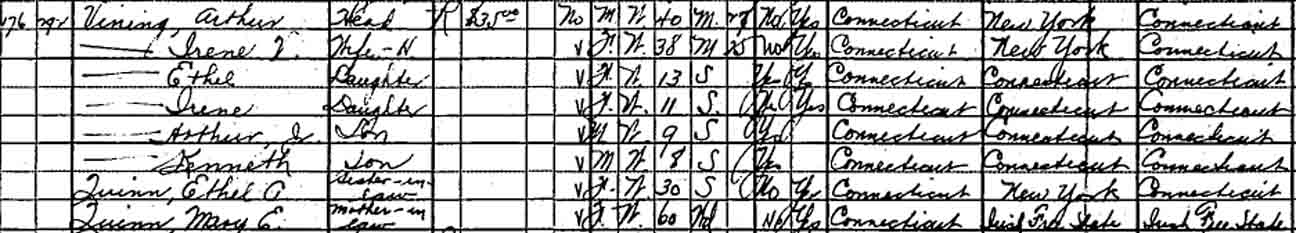 176 292 Vining, Arthur Head R $35.00 No M. W. 40 M. No Yes Connecticut New York Connecticut
— Irene V. Wife-H V F. W. 38 M No Yes Connecticut New York Connecticut
— Ethel Daughter V F. W. 13 S Yes Yes Connecticut Connecticut Connecticut
— Irene Daughter V F. W. 11 S. Yes Yes Connecticut Connecticut Connecticut
— Arthur, Jr. Son V M W. 9 S Yes Connecticut Connecticut Connecticut
— Kenneth Son V M W. 8 S Yes Connecticut Connecticut Connecticut
Quinn, Ethel A Sister-in-Law V F. W. 30 S No Yes Connecticut New York Connecticut
Quinn, Mary E. Mother-in Law V F. W. 60 Wd No Yes Connecticut Irish Free State Irish Free State